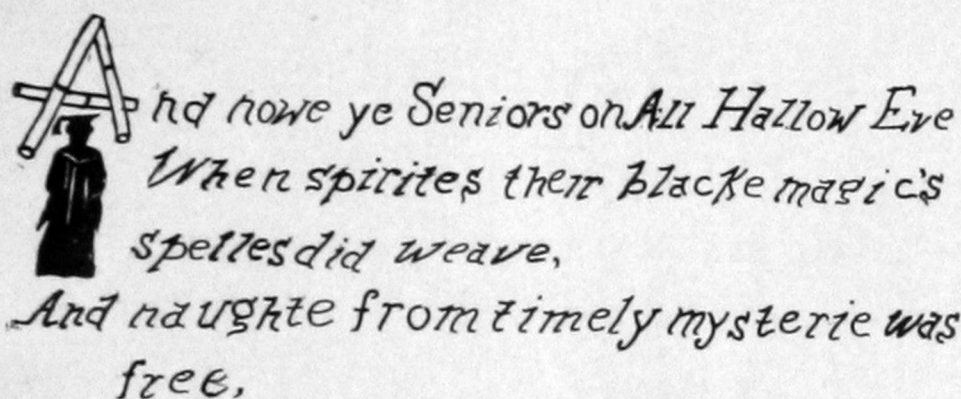 And nowe ye Seniors on All Hallow Eve
When spirites their blacke magic's
spelles did weave,
And naughte from timely mysterie was
free,